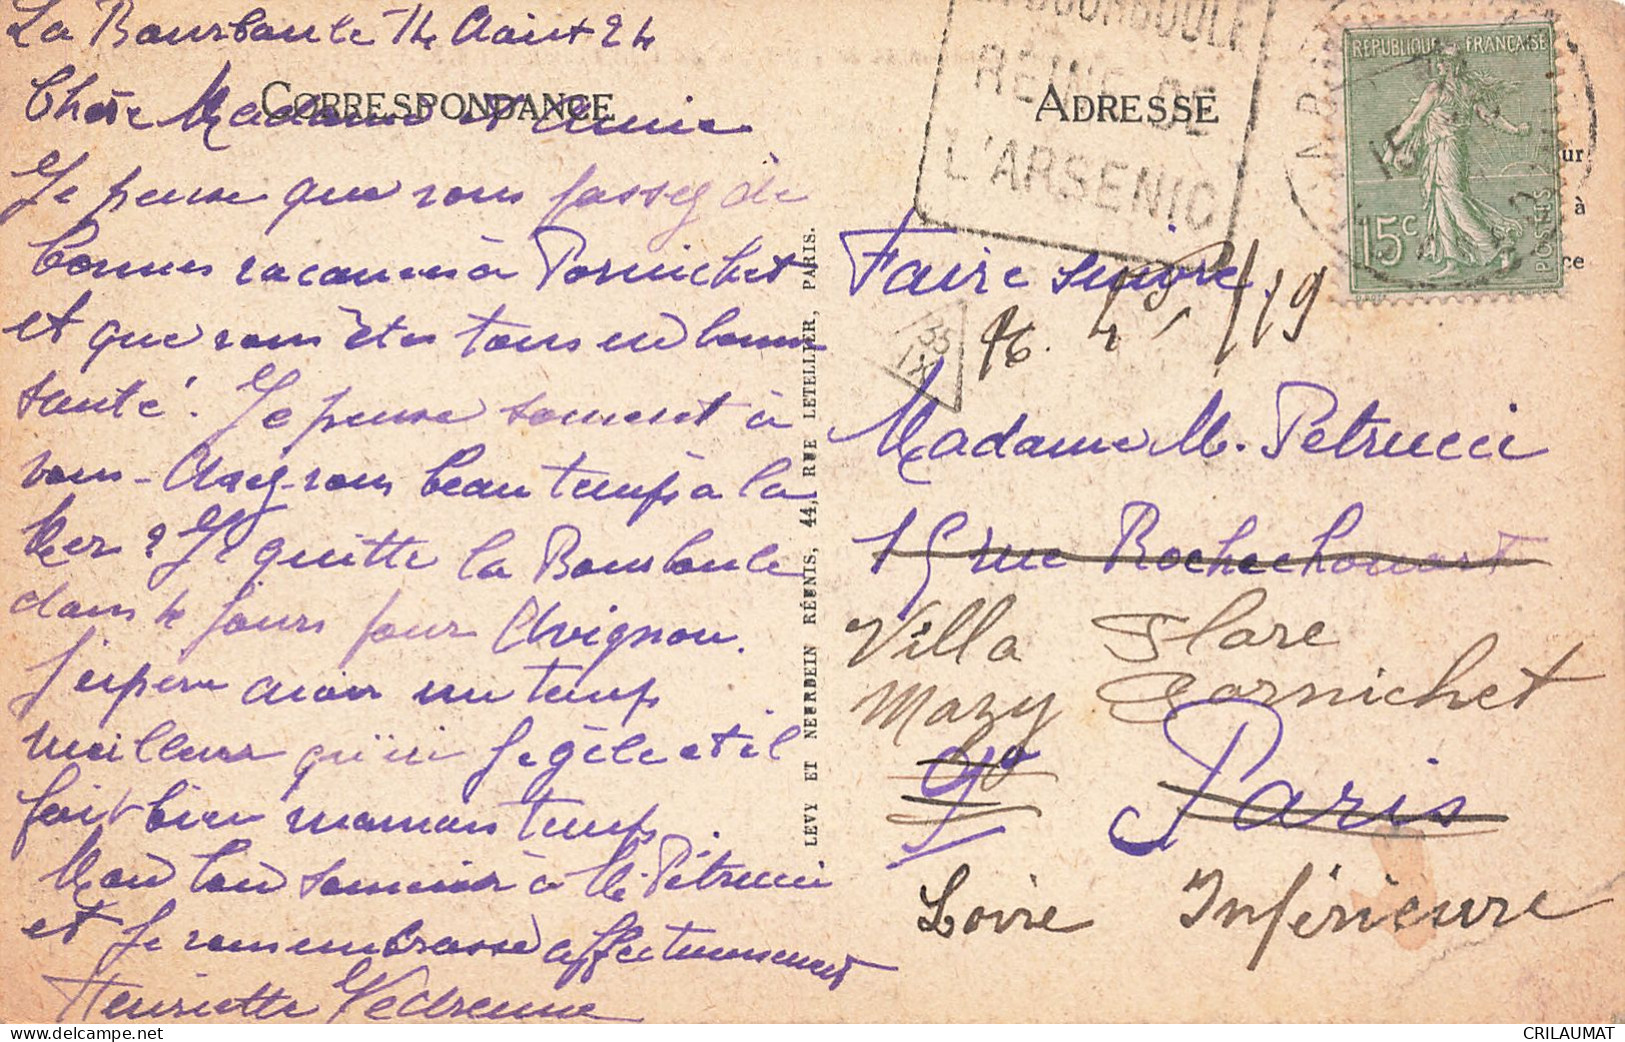 La Bourboule 14 Août 24
CORRESPONDANCE
Chère Madame et Amie
Je pense que vous passez de
bonnes vacances à Pornichet
et que vous êtes tous en bonne
santé. Je pense souvent à
vous - Avez-vous beau temps à la
Mer ? Je quitte la Bourboule
dans 4 jours pour Avignon.
J'espère avoir un temps
meilleur qu'ici je gèle et il
fait bien mauvais temps.
Mon bon souvenir à M. Petrucci
et je vous embrasse affectueusement
Henriette Vedrenne
LEVY ET NEURDEIN RÉUNIS, 44, RUE LETELLIER, PARIS.
LA BOURBOULE
REINE DE
L'ARSENIC
ADRESSE
REPUBLIQUE FRANÇAISE
15c
POSTES
Faire suivre
35
IX
Madame M. Petrucci
15 rue Rochechouart
Villa Flore
Mazy Pornichet
Paris
Loire Inférieure
CRILAUMAT